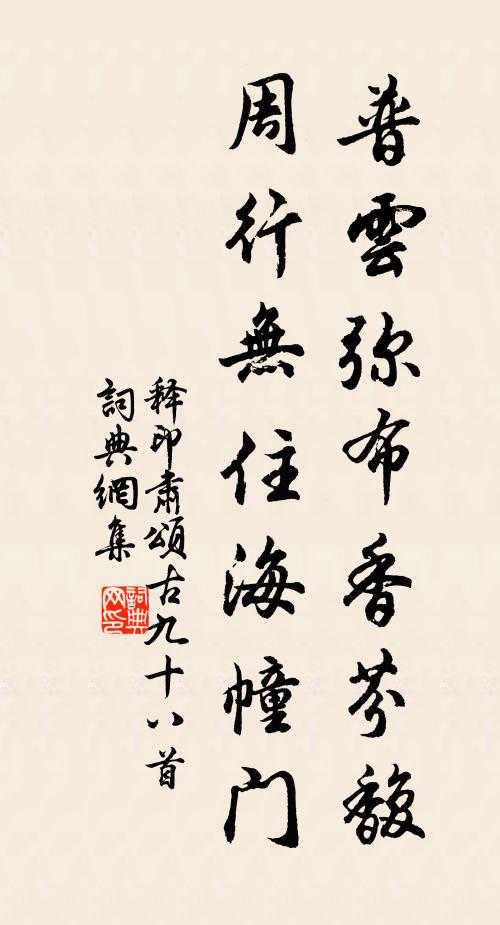 普雲弥布香芬馥
周行無住海幢门
释印肃頌古九十八首
詞典網集
詞典网印